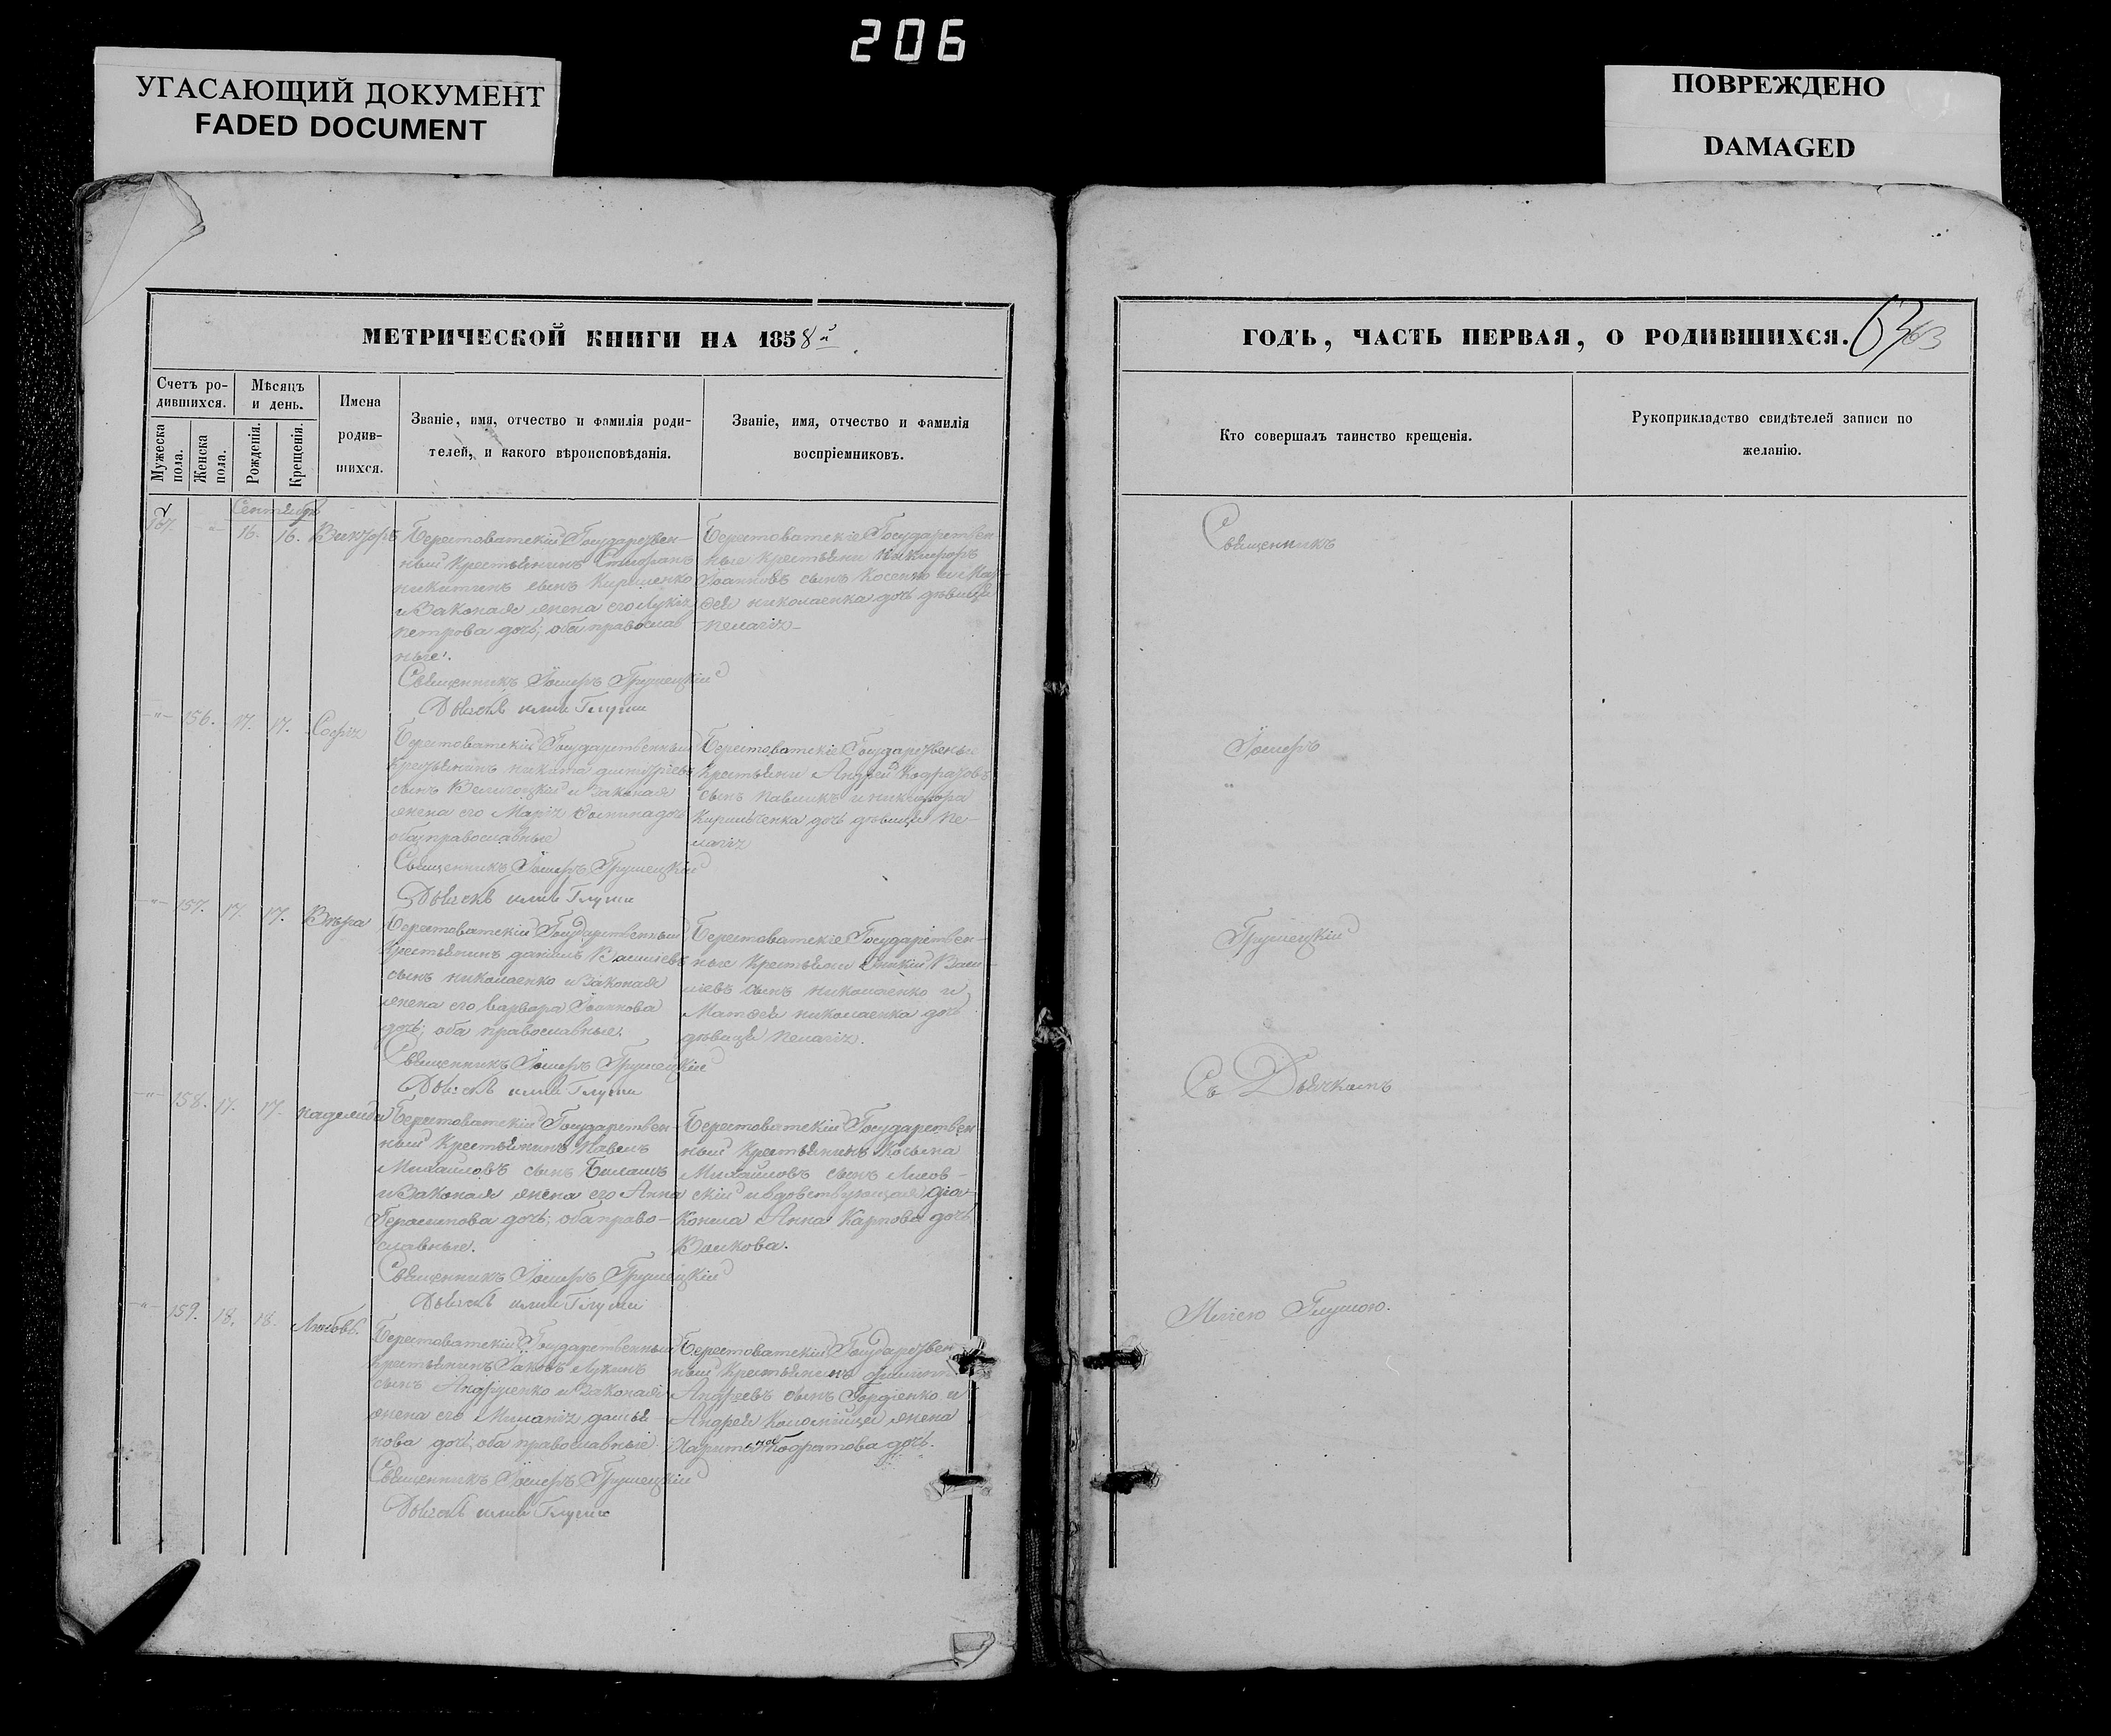 206
УГАСАЮЩИЙ ДОКУМЕНТ
FADED DOCUMENT
ПОВРЕЖДЕНО
DAMAGED
МЕТРИЧЕСКОЙ КНИГИ НА 1858й
Счетъ ро-
дившихся.
Мужеска
пола.
Женска
пола.
Мѣсяцъ
и день.
Рожденія.
Крещенія.
Имена
родив-
шихся.
Званіе, имя, отчество и фамилія роди-
телей, и какого вѣроисповѣданія.
Званіе, имя, отчество и фамилія
воспріемниковъ.
Сентябрь
167. -"- 16. 16. Викторъ
Берестоватскій Государствен-
ный Крестьянинъ Стефанъ
никитинъ сынъ Кириленко
и Законая жена его
петрова дочь; оба православ
ные.
Священникъ Іосифъ Грушецкій
Дьячекъ илія Глуши
Берестоватскіе Государствен-
ные крестьяни Никифоръ
Іоанновъ сынъ Косенко и Мат-
ѳея николаенка дочь дѣвица
пелагія
-"- 156. 17. 17. Софія
Берестоватскій Государственный
Крестьянинъ никита дмитріевъ
сынъ и законая
жена его Марія Фомина дочь
оба православные
Священникъ Іосифъ Грушецкій
Дьячекъ илія Глуши
Берестоватскіе Государственые
крестьяни Андрей Кодратовъ
сынъ павликъ и никифора
Кириченка дочь дѣвица Пе-
лагія
-"- 157. 17. 17. Вѣра
Берестоватскій Государственный
Крестьянинъ даніилъ Василіевъ
сынъ николаенко и Законая
жена его варвара Іоаннова
дочь; оба православные.
Священникъ Іосифъ Грушецкій
Дьячекъ илія Глуши
Берестоватскіе Государствен-
ные Крестьяни Васи-
ліевъ сынъ николаенко и
Матѳея николаенка дочь
дѣвица пелагія.
-"- 158. 17. 17. надежда
Берестоватскій Государствен-
ный Крестьянинъ Павелъ
Михайловъ сынъ Билашъ
и Законая жена его Анна
Герасимова дочь; оба право-
славные.
Священникъ Іосифъ Грушецкій
Дьячекъ илія Глуши
Берестоватскій Государствен
ный Крестьянинъ Косьма
Михайловъ сынъ Лисов-
скій и вдовствующая діа-
Конша Анна Карпова дочь
Волкова.
-"- 159. 18. 18. Любовь.
Берестоватскій Государственный
Крестьянинъ Іаковъ Лукинъ
сынъ Андрущенко и Законая
жена его Миланія дамья-
нова дочь; оба православные
Священникъ Іосифъ Грушецкій
Дьячекъ илія Глуши
Берестоватскій Государствен
ный Крестьянинъ филиппъ
Андреевъ сынъ Гордіенко и
Андрея Коломійца жена
Кодратова дочь.
ГОДЪ, ЧАСТЬ ПЕРВАЯ, О РОДИВШИХСЯ.
Кто совершалъ таинство крещенія.
Рукоприкладство свидѣтелей записи по
желанію.
Священникъ
Іосифъ
Грушецкій
Съ Дьячкомъ
Иліею Глушою.